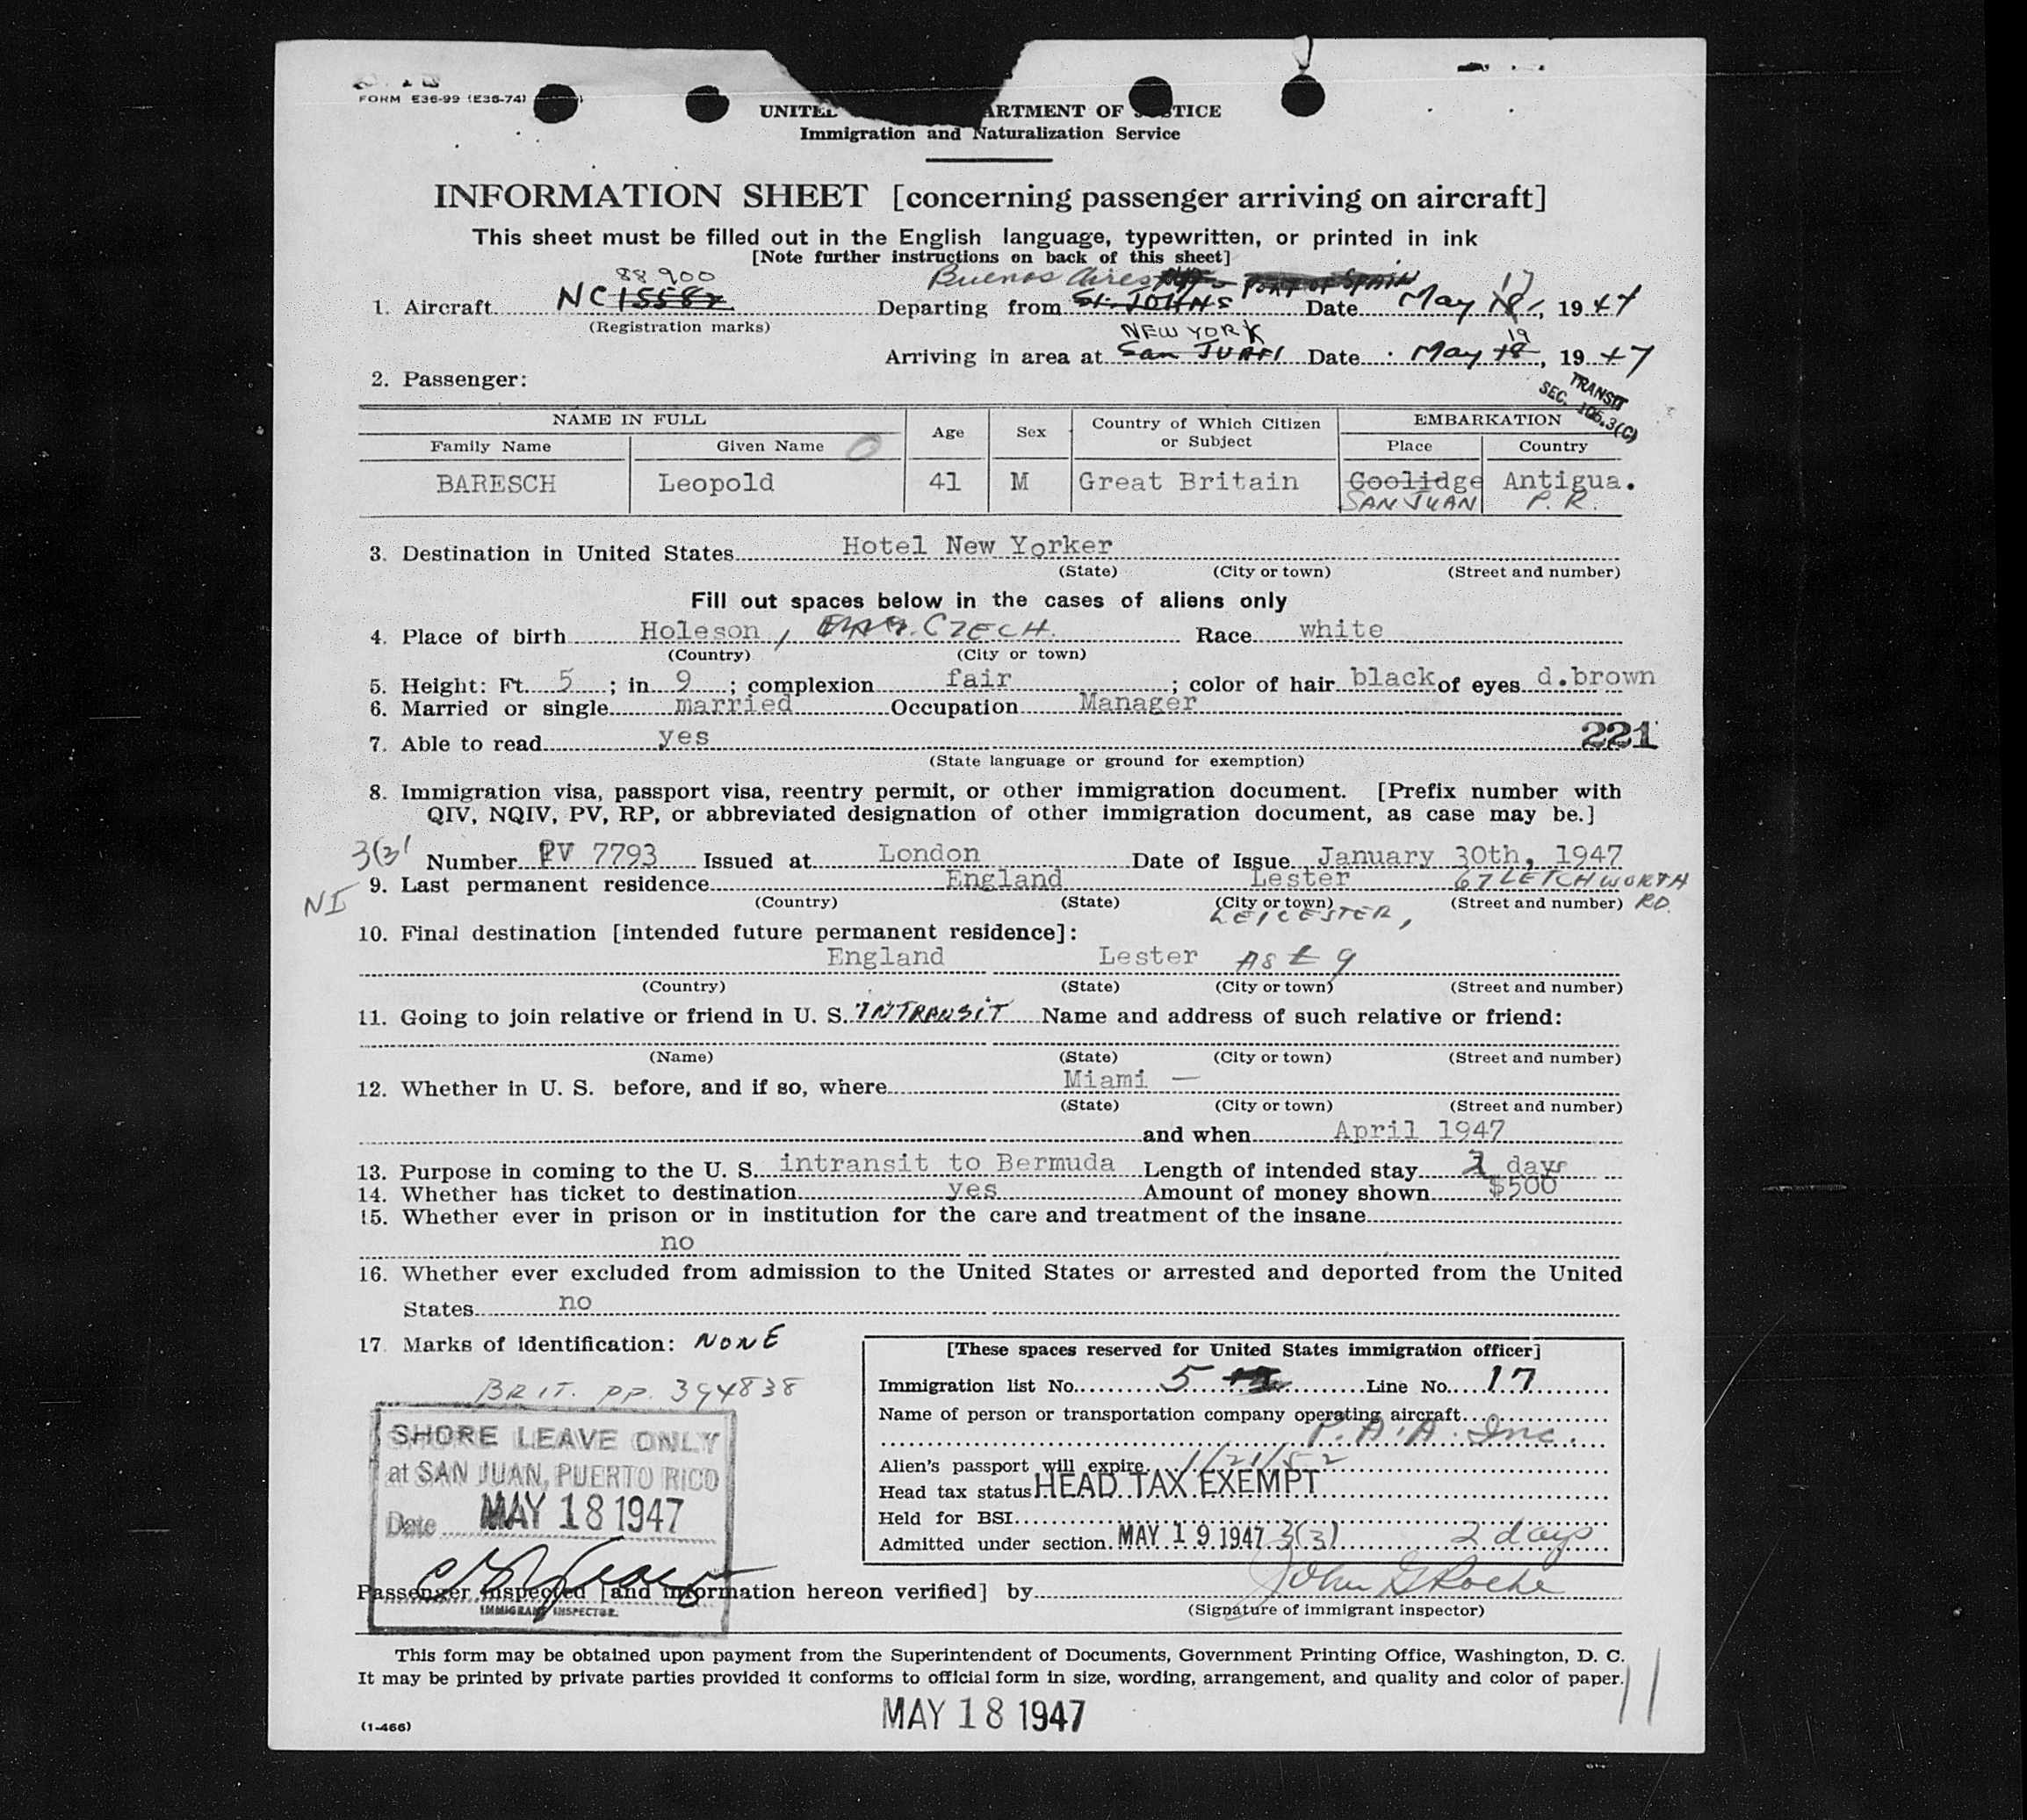 FORM E36-99 (E36-74)
UNITED ARTMENT OF JUSTICE
Immigration and Naturalization Service
INFORMATION SHEET [concerning passenger arriving on aircraft]
This sheet must be filled out in the English language, typewritten, or printed in ink
[Note further instructions on back of this sheet]
88900 Buenos Aires PORT OF SPAIN 17
1. Aircraft NC15582 Departing from St. JOHNS Date May 18, 1947
(Registration marks)
NEW YORK 19
Arriving in area at San JUAN Date May 18, 1947
2. Passenger:
TRANSIT
SEC. 105.3(C)
NAME IN FULL Age Sex Country of Which Citizen or Subject EMBARKATION
Family Name Given Name Place Country
BARESCH Leopold 41 M Great Britain Coolidge Antigua.
SAN JUAN P.R.
3. Destination in United States Hotel New Yorker
(State) (City or town) (Street and number)
Fill out spaces below in the cases of aliens only
4. Place of birth Holeson, CZECH. Race white
(Country) (City or town)
5. Height: Ft. 5; in 9; complexion fair; color of hair black of eyes d.brown
6. Married or single married Occupation Manager
7. Able to read yes 221
(State language or ground for exemption)
8. Immigration visa, passport visa, reentry permit, or other immigration document. [Prefix number with
QIV, NQIV, PV, RP, or abbreviated designation of other immigration document, as case may be.]
3(3) Number PV 7793 Issued at London Date of Issue January 30th, 1947
NI 9. Last permanent residence England Lester 67 LETCHWORTH
(Country) (State) (City or town) (Street and number) RD.
LEICESTER,
10. Final destination [intended future permanent residence]:
England Lester AS t 9
(Country) (State) (City or town) (Street and number)
11. Going to join relative or friend in U. S. INTRANSIT Name and address of such relative or friend:
(Name) (State) (City or town) (Street and number)
12. Whether in U. S. before, and if so, where Miami —
(State) (City or town) (Street and number)
and when April 1947
13. Purpose in coming to the U. S. intransit to Bermuda Length of intended stay 2 days
14. Whether has ticket to destination yes Amount of money shown $500
15. Whether ever in prison or in institution for the care and treatment of the insane
no
16. Whether ever excluded from admission to the United States or arrested and deported from the United
States no
17. Marks of identification: NONE
BRIT. PP. 394838
SHORE LEAVE ONLY
at SAN JUAN, PUERTO RICO
Date MAY 18 1947
IMMIGRANT INSPECTOR.
[These spaces reserved for United States immigration officer]
Immigration list No. 5 Line No. 17
Name of person or transportation company operating aircraft
P.A.A. Inc.
Alien's passport will expire 1/21/52
Head tax status HEAD TAX EXEMPT
Held for BSI
Admitted under section MAY 19 1947 3(3) 2 days
Passenger inspected [and information hereon verified] by John G Roche
(Signature of immigrant inspector)
This form may be obtained upon payment from the Superintendent of Documents, Government Printing Office, Washington, D. C.
It may be printed by private parties provided it conforms to official form in size, wording, arrangement, and quality and color of paper.
MAY 18 1947 11
(1-466)